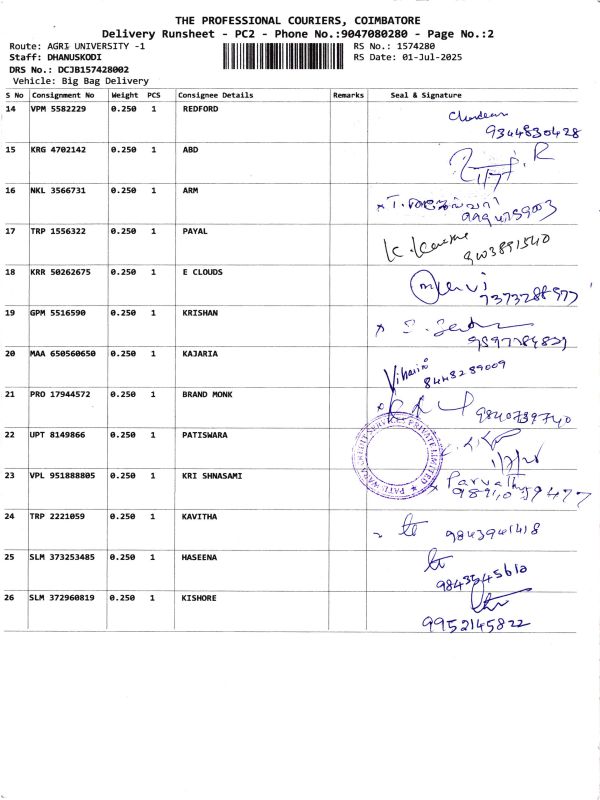 THE PROFESSIONAL COURIERS, COIMBATORE
Delivery Runsheet - PC2 - Phone No.:9047080280 - Page No.:2
Route: AGRI UNIVERSITY -1 RS No.: 1574280
Staff: DHANUSKODI RS Date: 01-Jul-2025
DRS No.: DCJB157428002
Vehicle: Big Bag Delivery
S No Consignment No Weight PCS Consignee Details Remarks Seal & Signature
14 VPM 5582229 0.250 1 REDFORD
9344830428
15 KRG 4702142 0.250 1 ABD
R
16 NKL 3566731 0.250 1 ARM
17 TRP 1556322 0.250 1 PAYAL
9403891540
18 KRR 50262675 0.250 1 E CLOUDS
7373288977
19 GPM 5516590 0.250 1 KRISHAN
20 MAA 650560650 0.250 1 KAJARIA
8448289009
21 PRO 17944572 0.250 1 BRAND MONK
9840739740
22 UPT 8149866 0.250 1 PATISWARA
23 VPL 951888805 0.250 1 KRI SHNASAMI
Parvathy
24 TRP 2221059 0.250 1 KAVITHA
9843941418
25 SLM 373253485 0.250 1 HASEENA
26 SLM 372960819 0.250 1 KISHORE
9952145822